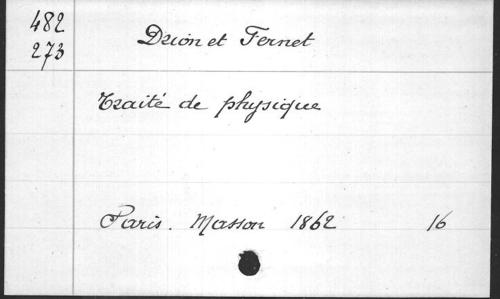 482
273
Drion et Fernet
Traité de physique
Paris. Masson 1862 16